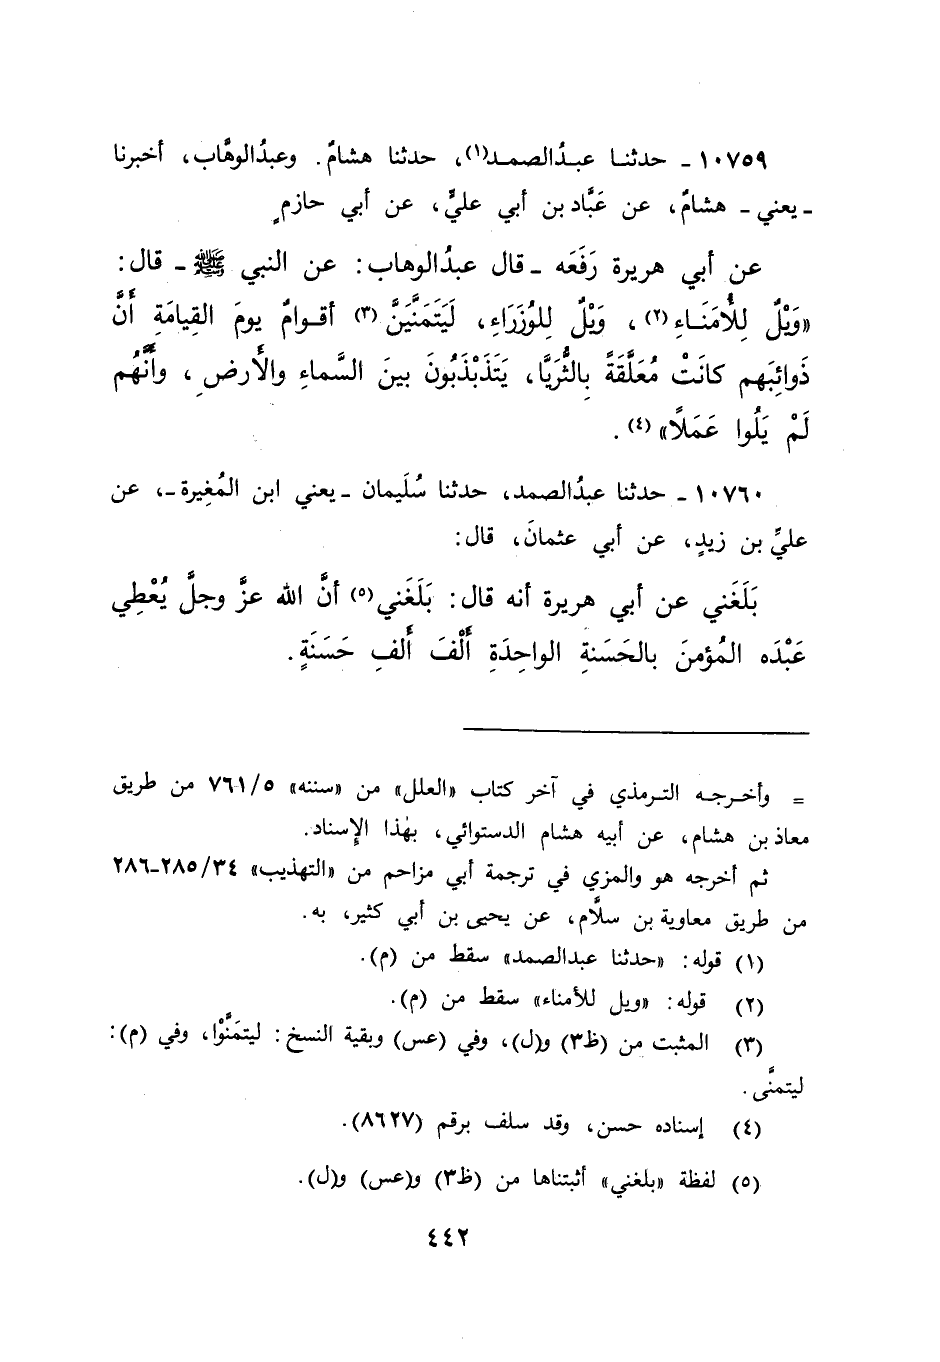 ١٠٧٥٩ - حدثنا عبدُالصمد(١)، حدثنا هشامٌ. وعبدُالوهَّاب، أخبرنا
- يعني - هشامٌ، عن عَبَّاد بن أبي عليٍّ، عن أبي حازمٍ
عن أبي هريرة رَفَعَه - قال عبدُالوهاب: عن النبي ﷺ - قال:
«وَيْلٌ لِلأُمَنَاءِ(٢)، وَيْلٌ لِلوُزَرَاءِ، لَيَتَمَنَّيَنَّ(٣) أقوامٌ يومَ القِيامَةِ أَنَّ
ذَوائِبَهم كانَتْ مُعَلَّقَةً بالثُّرَيَّا، يَتَذَبْذَبُونَ بينَ السَّماءِ والأَرضِ، وأَنَّهُم
لَمْ يَلُوا عَمَلًا»(٤).
١٠٧٦٠ - حدثنا عبدُالصمد، حدثنا سُلَيمان - يعني ابن المُغِيرة -، عن
عليِّ بن زيدٍ، عن أبي عثمانَ، قال:
بَلَغَني عن أبي هريرة أنه قال: بَلَغَني(٥) أنَّ الله عزَّ وجلَّ يُعْطِي
عَبْدَه المُؤمنَ بالحَسَنةِ الواحِدَةِ أَلْفَ أَلفِ حَسَنَةٍ.
= وأخرجه الترمذي في آخر كتاب «العلل» من «سننه» ٧٦١/٥ من طريق
معاذ بن هشام، عن أبيه هشام الدستوائي، بهذا الإسناد.
ثم أخرجه هو والمزي في ترجمة أبي مزاحم من «التهذيب» ٢٨٥/٣٤-٢٨٦
من طريق معاوية بن سلَّام، عن يحيى بن أبي كثير، به.
(١) قوله: «حدثنا عبدالصمد» سقط من (م).
(٢) قوله: «ويل للأمناء» سقط من (م).
(٣) المثبت من (ظ٣) و(ل)، وفي (عس) وبقية النسخ: ليتمَنَّوْا، وفي (م):
ليتمنَّى.
(٤) إسناده حسن، وقد سلف برقم (٨٦٢٧).
(٥) لفظة «بلغني» أثبتناها من (ظ٣) و(عس) و(ل).
٤٤٢